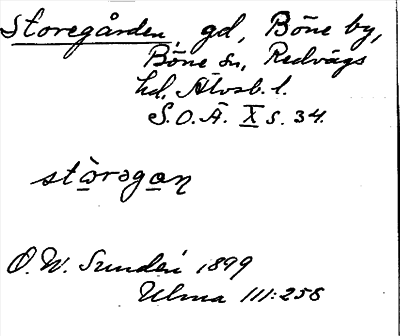 Storegården, gd, Böne by,
Böne sn, Redvägs
hd, Älvsb. l.
S.O.Ä. X s. 34.
stòrəgaɳ
O. W. Sundén 1899
Ulma 111:258